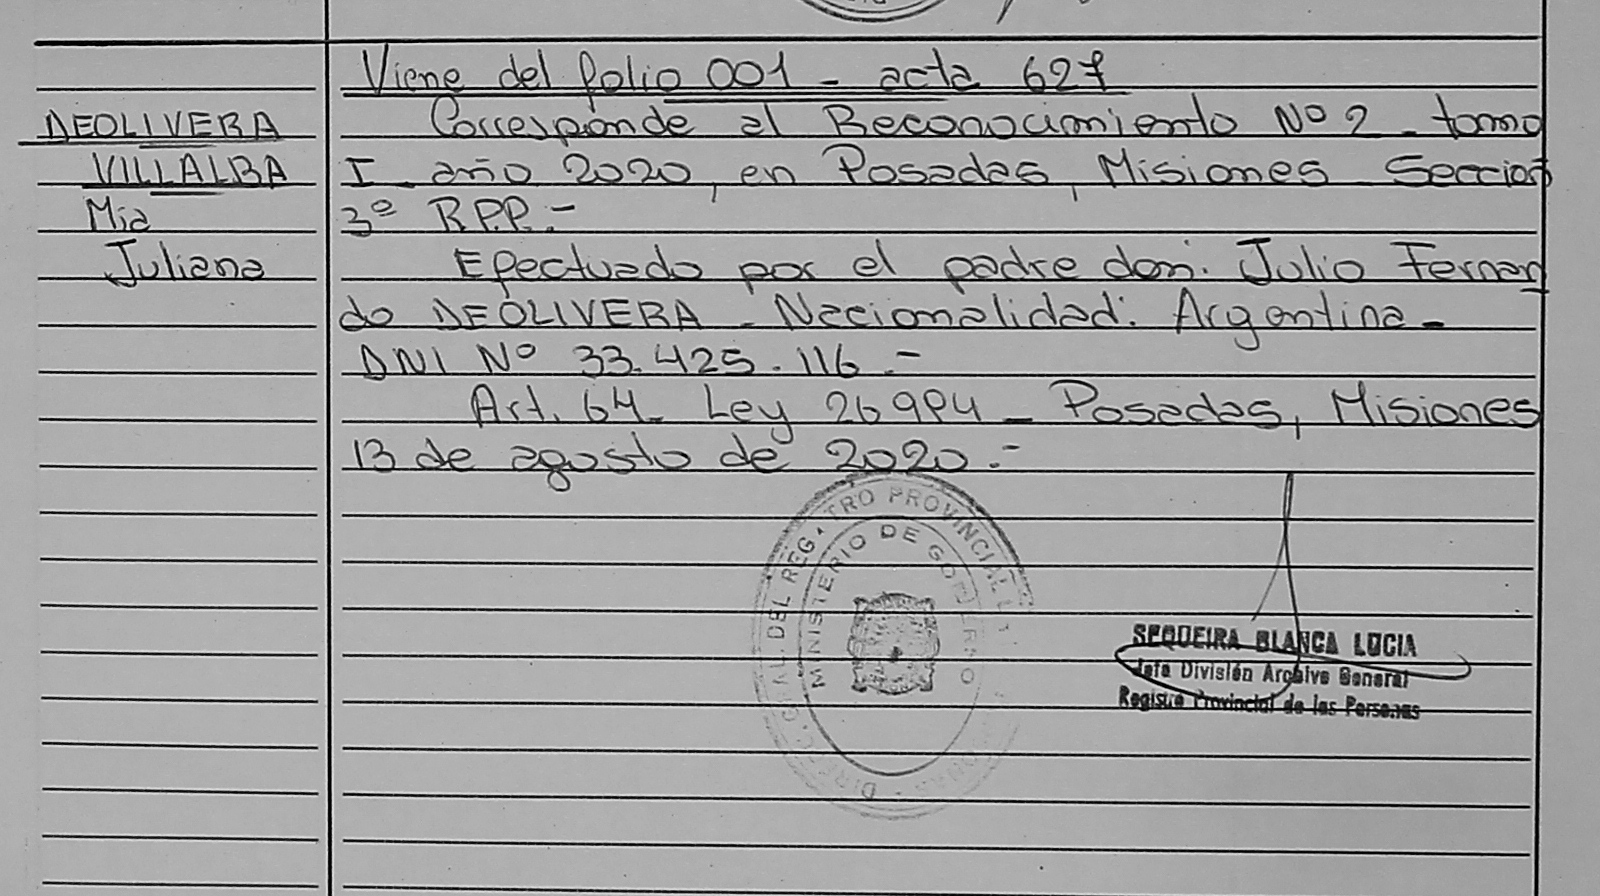 Viene del folio 001 - acta 627
DEOLIVERA
VILLALBA
Mia
Juliana
Corresponde al Reconocimiento Nº 2 - tomo
I - año 2020, en Posadas, Misiones - Seccion
3º R.P.P. -
Efectuado por el padre don: Julio Fernan
do DEOLIVERA - Nacionalidad: Argentina -
DNI Nº 33.425.116.-
Art. 64 - Ley 26994 - Posadas, Misiones
13 de agosto de 2020.-
DIREC. GRAL. DEL REG. PROVINCIAL
MINISTERIO DE GOBIERNO
SEQUEIRA BLANCA LUCIA
Jefa División Archivo General
Registro Provincial de las Personas